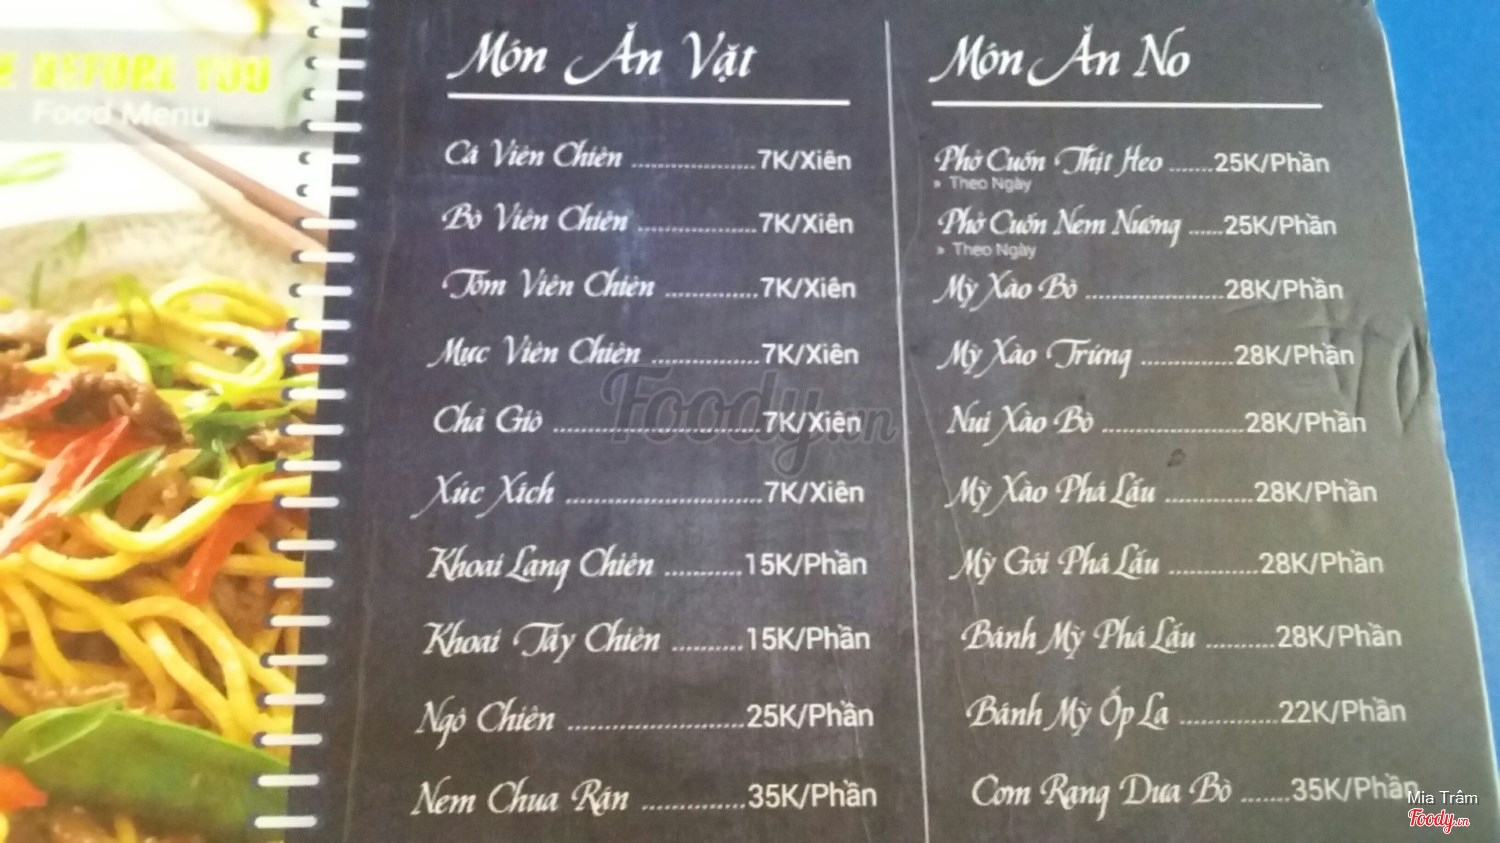 BEFORE YOU
Food Menu
Món Ăn Vặt
Cá Viên Chiên ................7K/Xiên
Bò Viên Chiên ................7K/Xiên
Tôm Viên Chiên .............7K/Xiên
Mực Viên Chiên ..............7K/Xiên
Chả Giò ............................7K/Xiên
Xúc Xích ..........................7K/Xiên
Khoai Lang Chiên ...........15K/Phần
Khoai Tây Chiên ..........15K/Phần
Ngô Chiên ........................25K/Phần
Nem Chua Rán ..............35K/Phần
Món Ăn No
Phở Cuốn Thịt Heo .......25K/Phần
» Theo Ngày
Phở Cuốn Nem Nướng ......25K/Phần
» Theo Ngày
Mỳ Xào Bò ....................28K/Phần
Mỳ Xào Trứng .............28K/Phần
Nui Xào Bò ....................28K/Phần
Mỳ Xào Phá Lấu ............28K/Phần
Mỳ Gói Phá Lấu .............28K/Phần
Bánh Mỳ Phá Lấu ..........28K/Phần
Bánh Mỳ Ốp La ..............22K/Phần
Cơm Rang Dưa Bò .......35K/Phần
Foody.vn
Mia Trâm
Foody.vn